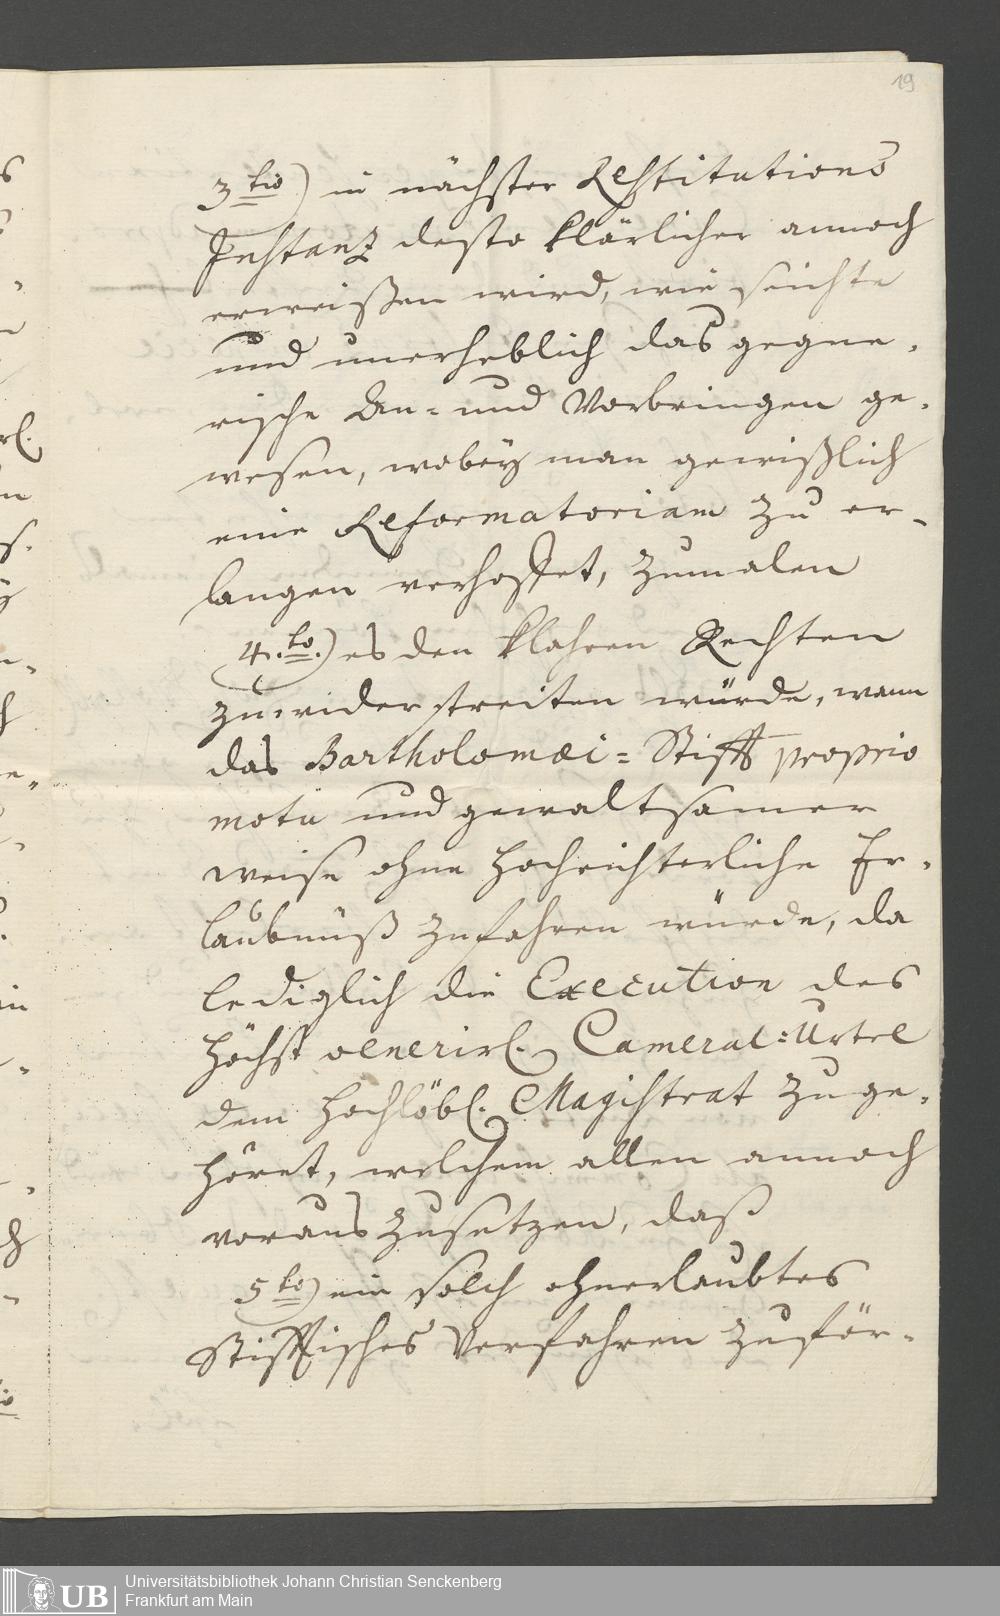 19
3tio) in nächster Restitutions
Instanz desto klärlicher annoch
erweißen wird, wie seichte
und unerheblich das gegne-
rische An- und Vorbringen ge-
wesen, wobey man gewißlich
eine Reformatoriam zu er-
langen verhoffet, zumalen
4.to.) es den klahren Rechten
zuwider streiten würde, wann
das Bartholomæi=Stifft proprio
motu und gewaltsamer
weise ohne hochrichterliche Er-
laubnüß zufahren würde, da
lediglich die Execution des
höchst venerirl. Cameral=Urtel
dem hochlöbl. Magistrat zu ge-
höret, welchem allen annoch
voraus zusetzen, daß
5to) ein solch ohnerlaubtes
Stifftisches Verfahren zuför-
UB Universitätsbibliothek Johann Christian Senckenberg
Frankfurt am Main